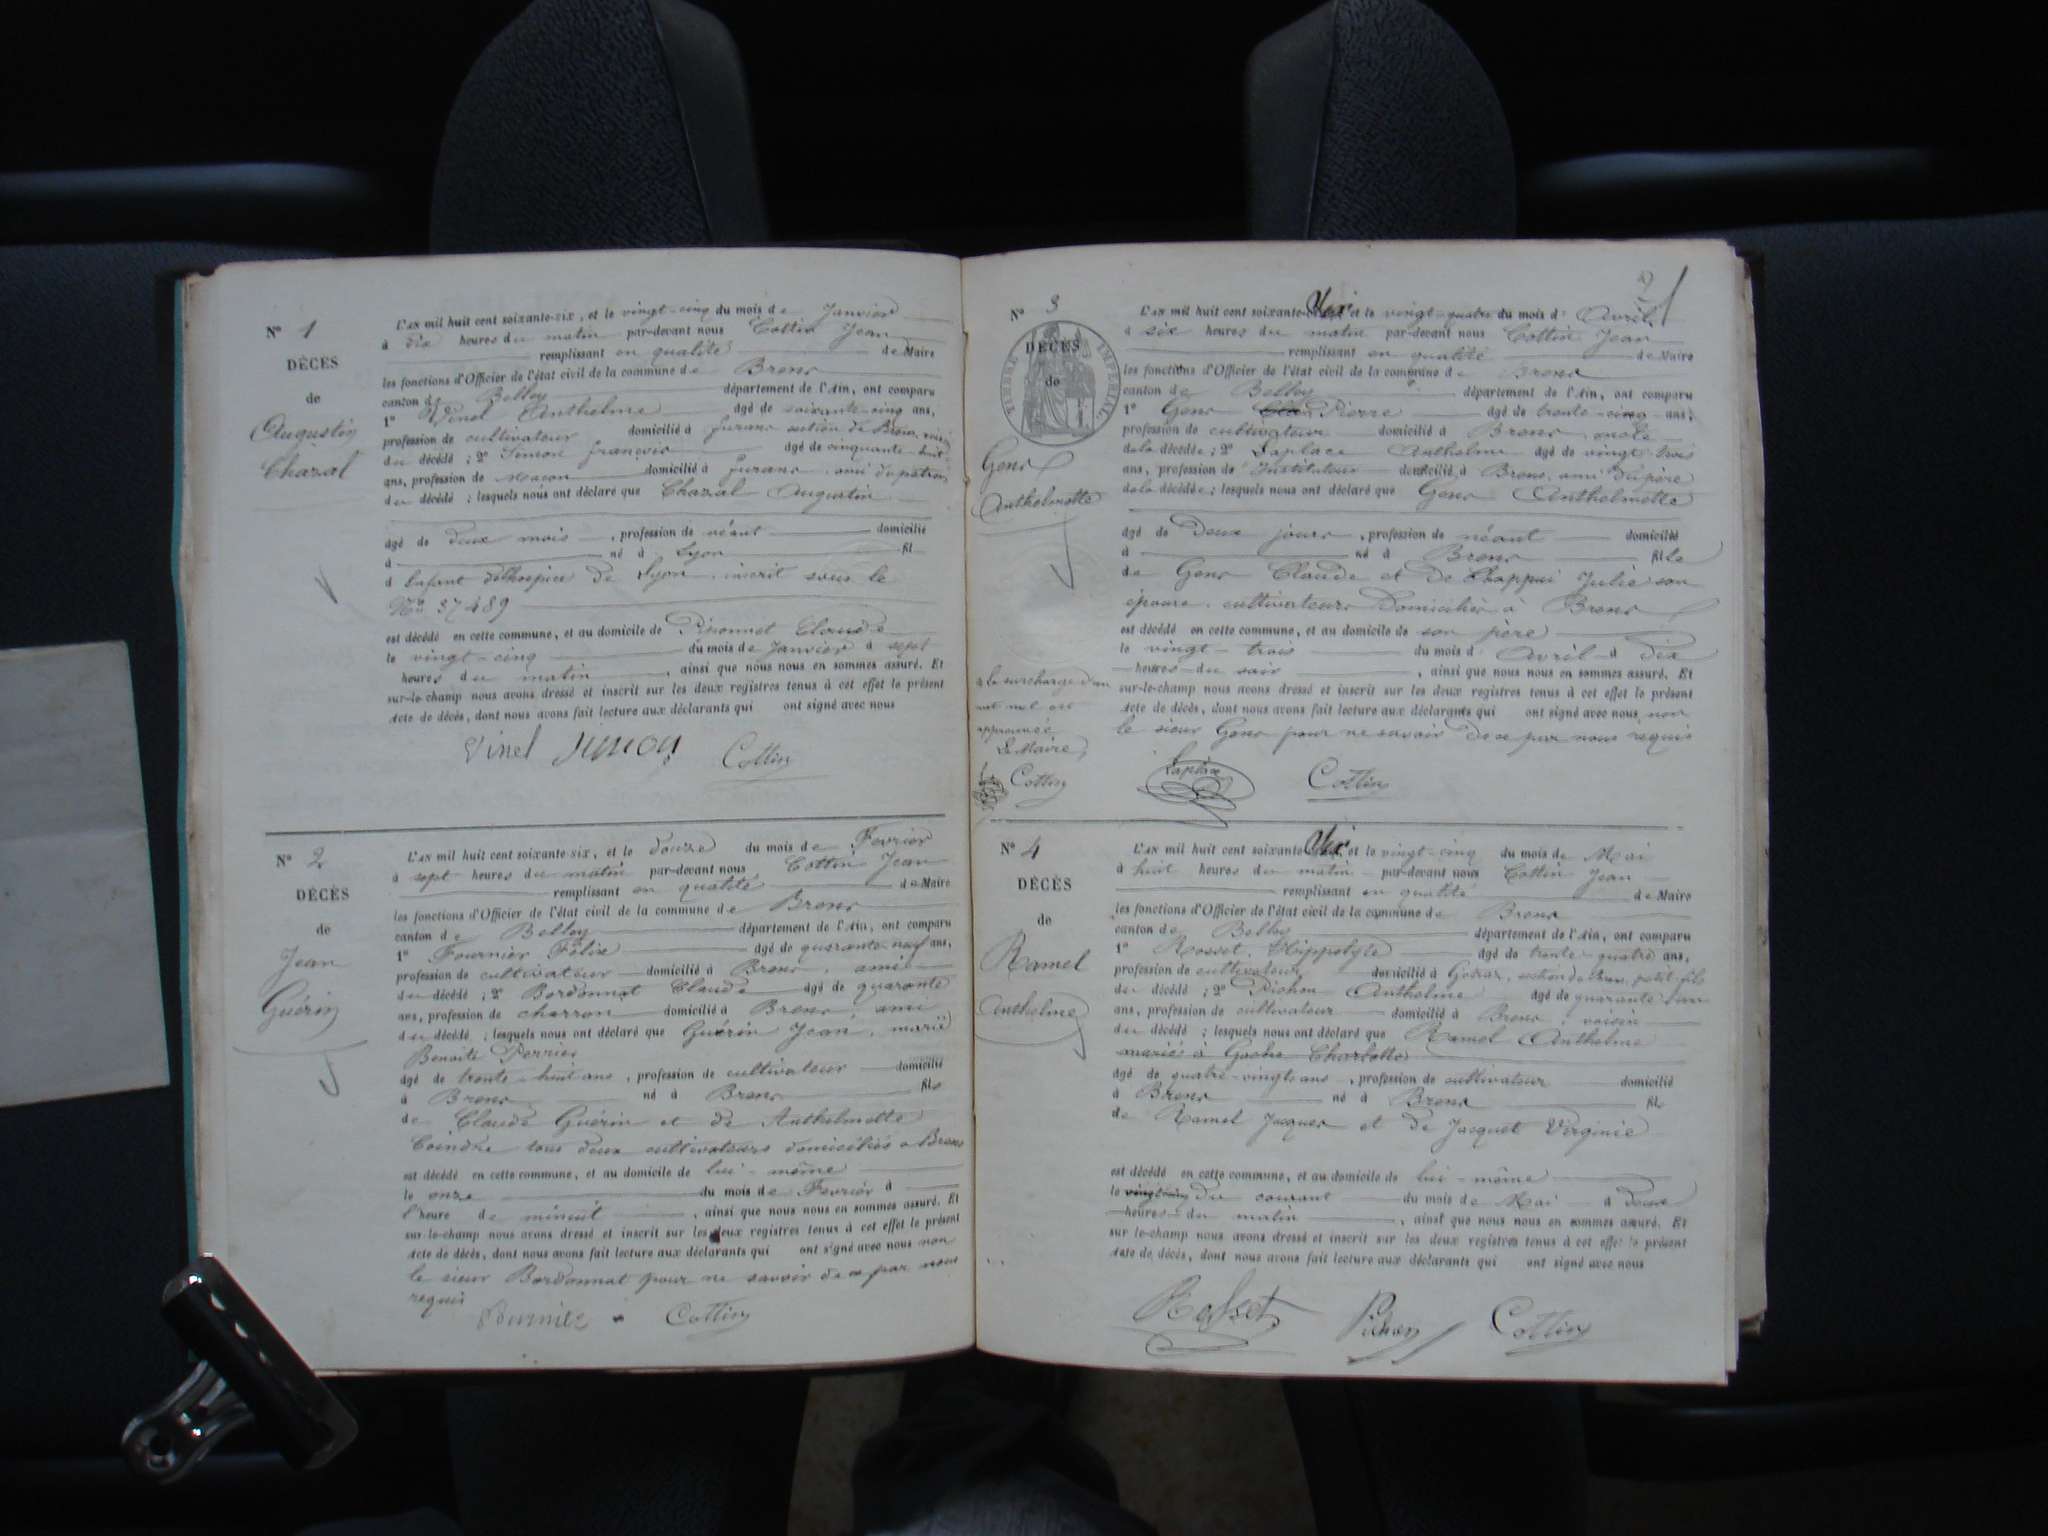 N° 1
DÉCÈS
de
Augustin
Chazal
L'AN mil huit cent soixante-six, et le vingt-cinq du mois de Janvier
à dix heures du matin par-devant nous Cottin Jean
remplissant en qualité de Maire
les fonctions d'Officier de l'état civil de la commune de Brens
canton de Belley département de l'Ain, ont comparu
1° Vinel Anthelme âgé de soixante-cinq ans,
profession de cultivateur domicilié à furans section de Brens, voisin
du décédé ; 2° Simon françois âgé de cinquante-huit
ans, profession de maçon domicilié à furans, ami du patron
du décédé ; lesquels nous ont déclaré que Chazal Augustin
âgé de deux mois, profession de néant domicilié
à né à Lyon fil
d Enfant de l'hospice de Lyon, inscrit sous le
No 37489
est décédé en cette commune, et au domicile de Claude
le vingt-cinq du mois de Janvier à sept
heures du matin, ainsi que nous nous en sommes assuré. Et
sur-le-champ nous avons dressé et inscrit sur les deux registres tenus à cet effet le présent
Acte de décès, dont nous avons fait lecture aux déclarants qui ont signé avec nous
Vinel Simon Cottin
N° 2
DÉCÈS
de
Jean
Guérin
L'AN mil huit cent soixante-six, et le douze du mois de Fevrier
à sept heures du matin par-devant nous Cottin Jean
remplissant en qualité de Maire
les fonctions d'Officier de l'état civil de la commune de Brens
canton de Belley département de l'Ain, ont comparu
1° Fournier Félix âgé de quarante-neuf ans,
profession de cultivateur domicilié à Brens, ami
du décédé ; 2° Bordonnat Claude âgé de quarante
ans, profession de charron domicilié à Brens ami
du décédé ; lesquels nous ont déclaré que Guérin Jean, marié
Benoite Perrier
âgé de trente-huit ans, profession de cultivateur domicilié
à Brens né à Brens fils
de Claude Guérin et de Anthelmette
Coindre tous deux cultivateurs domiciliés à Brens
est décédé en cette commune, et au domicile de lui-même
le onze du mois de Fevrier à
l'heure de minuit, ainsi que nous nous en sommes assuré. Et
sur-le-champ nous avons dressé et inscrit sur les deux registres tenus à cet effet le présent
Acte de décès, dont nous avons fait lecture aux déclarants qui ont signé avec nous non
le sieur Bordonnat pour ne savoir de ce par nous
requis
Cottin
2
N° 3
TIMBRE IMPÉRIAL
DÉCÈS
de
Gens
Anthelmette
L'AN mil huit cent soixante six et le vingt-quatre du mois d' Avril
à six heures du matin par-devant nous Cottin Jean
remplissant en qualité de Maire
les fonctions d'Officier de l'état civil de la commune de Brens
canton de Belley département de l'Ain, ont comparu
1° Gens Pierre âgé de trente-cinq ans,
profession de cultivateur domicilié à Brens
de la décédée ; 2° Laplace Anthelme âgé de vingt-trois
ans, profession de Instituteur domicilié à Brens, ami du père
de la décédée ; lesquels nous ont déclaré que Gens Anthelmette
âgé de Deux jours, profession de néant domicilié
à né à Brens fille
de Gens Claude et de Chappui Julie son
épouse, cultivateurs Domiciliés à Brens
est décédé en cette commune, et au domicile de son père
le vingt-trois du mois d' Avril à dix
heures du soir, ainsi que nous nous en sommes assuré. Et
sur-le-champ nous avons dressé et inscrit sur les deux registres tenus à cet effet le présent
Acte de décès, dont nous avons fait lecture aux déclarants qui ont signé avec nous non
le sieur Gens pour ne savoir de ce par nous requis
la surcharge d'un
mot nul est
approuvée
Le Maire
Cottin
Laplace Cottin
N° 4
DÉCÈS
de
Ramel
Anthelme
L'AN mil huit cent soixante six et le vingt-cinq du mois de Mai
à huit heures du matin par-devant nous Cottin Jean
remplissant en qualité de Maire
les fonctions d'Officier de l'état civil de la commune de Brens
canton de Belley département de l'Ain, ont comparu
1° Rosset, Hippolyte âgé de trente-quatre ans,
profession de cultivateur domicilié à section de Brens, petit-fils
du décédé ; 2° Pichon Anthelme âgé de quarante
ans, profession de cultivateur domicilié à Brens, voisin
du décédé ; lesquels nous ont déclaré que Ramel Anthelme
marié à Charlotte
âgé de quatre-vingts ans, profession de cultivateur domicilié
à Brens né à Brens fils
de Ramel Jacques et de Jacquet Virginie
est décédé en cette commune, et au domicile de lui-même
le vingt-cinq du courant du mois de Mai à deux
heures du matin, ainsi que nous nous en sommes assuré. Et
sur-le-champ nous avons dressé et inscrit sur les deux registres tenus à cet effet le présent
Acte de décès, dont nous avons fait lecture aux déclarants qui ont signé avec nous
Rosset Pichon Cottin